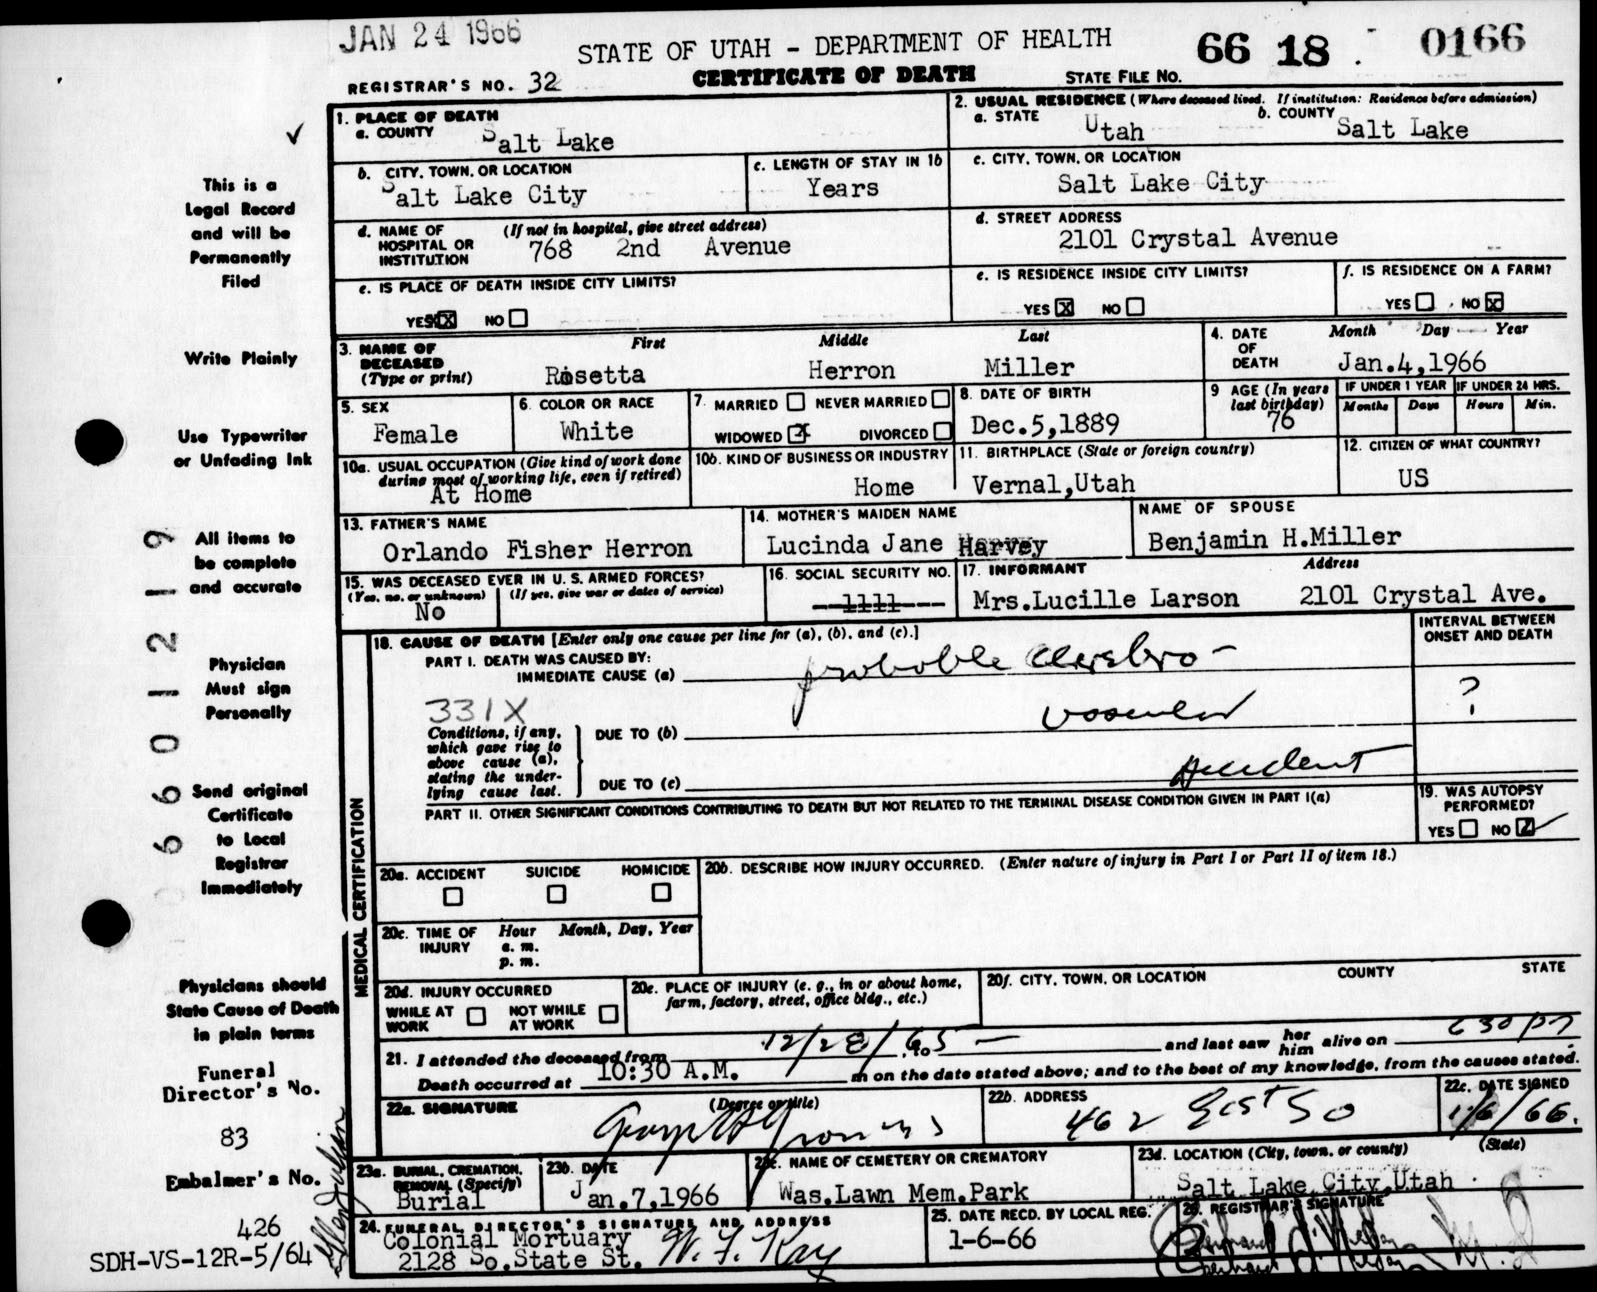 JAN 24 1966
STATE OF UTAH - DEPARTMENT OF HEALTH
66 18 . 0166
REGISTRAR'S NO. 32
CERTIFICATE OF DEATH
STATE FILE NO.
1. PLACE OF DEATH
a. COUNTY
Salt Lake
2. USUAL RESIDENCE (Where deceased lived. If institution: Residence before admission)
a. STATE
Utah
b. COUNTY
Salt Lake
b. CITY, TOWN, OR LOCATION
Salt Lake City
c. LENGTH OF STAY IN 1b
Years
c. CITY, TOWN, OR LOCATION
Salt Lake City
d. NAME OF HOSPITAL OR INSTITUTION
(If not in hospital, give street address)
768 2nd Avenue
d. STREET ADDRESS
2101 Crystal Avenue
e. IS PLACE OF DEATH INSIDE CITY LIMITS?
YES X NO
e. IS RESIDENCE INSIDE CITY LIMITS?
YES X NO
f. IS RESIDENCE ON A FARM?
YES NO X
3. NAME OF DECEASED
(Type or print)
First Middle Last
Rosetta Herron Miller
4. DATE OF DEATH
Month Day Year
Jan.4,1966
5. SEX
Female
6. COLOR OR RACE
White
7. MARRIED NEVER MARRIED
WIDOWED X DIVORCED
8. DATE OF BIRTH
Dec.5,1889
9 AGE (In years last birthday)
76
IF UNDER 1 YEAR IF UNDER 24 HRS.
Months Days Hours Min.
10a. USUAL OCCUPATION (Give kind of work done
during most of working life, even if retired)
At Home
10b. KIND OF BUSINESS OR INDUSTRY
Home
11. BIRTHPLACE (State or foreign country)
Vernal,Utah
12. CITIZEN OF WHAT COUNTRY?
US
13. FATHER'S NAME
Orlando Fisher Herron
14. MOTHER'S MAIDEN NAME
Lucinda Jane Harvey
NAME OF SPOUSE
Benjamin H.Miller
15. WAS DECEASED EVER IN U. S. ARMED FORCES?
(Yes, no, or unknown) (If yes, give war or dates of service)
No
16. SOCIAL SECURITY NO.
--1111---
17. INFORMANT Address
Mrs.Lucille Larson 2101 Crystal Ave.
MEDICAL CERTIFICATION
18. CAUSE OF DEATH [Enter only one cause per line for (a), (b), and (c).]
INTERVAL BETWEEN ONSET AND DEATH
PART I. DEATH WAS CAUSED BY:
IMMEDIATE CAUSE (a) probable cerebro-
331X
?
Conditions, if any,
which gave rise to
above cause (a),
stating the under-
lying cause last.
DUE TO (b) vascular
DUE TO (c) accident
PART II. OTHER SIGNIFICANT CONDITIONS CONTRIBUTING TO DEATH BUT NOT RELATED TO THE TERMINAL DISEASE CONDITION GIVEN IN PART I(a)
19. WAS AUTOPSY PERFORMED?
YES NO
20a. ACCIDENT SUICIDE HOMICIDE
20b. DESCRIBE HOW INJURY OCCURRED. (Enter nature of injury in Part I or Part II of item 18.)
20c. TIME OF INJURY
Hour Month, Day, Year
a. m.
p. m.
20d. INJURY OCCURRED
WHILE AT WORK NOT WHILE AT WORK
20e. PLACE OF INJURY (e. g., in or about home,
farm, factory, street, office bldg., etc.)
20f. CITY, TOWN, OR LOCATION COUNTY STATE
21. I attended the deceased from 12/28/65 to — and last saw her him alive on
Death occurred at 10:30 A.M. m on the date stated above; and to the best of my knowledge, from the causes stated.
22a. SIGNATURE (Degree or title)
22b. ADDRESS
462 East So
22c. DATE SIGNED
1/6/66.
23a. BURIAL, CREMATION, REMOVAL (Specify)
Burial
23b. DATE
Jan.7,1966
23c. NAME OF CEMETERY OR CREMATORY
Was.Lawn Mem.Park
23d. LOCATION (City, town, or county) (State)
Salt Lake City,Utah
24. FUNERAL DIRECTOR'S SIGNATURE AND ADDRESS
Colonial Mortuary
2128 So.State St.
25. DATE RECD. BY LOCAL REG.
1-6-66
26. REGISTRAR'S SIGNATURE
This is a
Legal Record
and will be
Permanently
Filed
Write Plainly
Use Typewriter
or Unfading Ink
All items to
be complete
and accurate
Physician
Must sign
Personally
Send original
Certificate
to Local
Registrar
Immediately
Physicians should
State Cause of Death
in plain terms
Funeral
Director's No.
83
Embalmer's No.
426
SDH-VS-12R-5/64